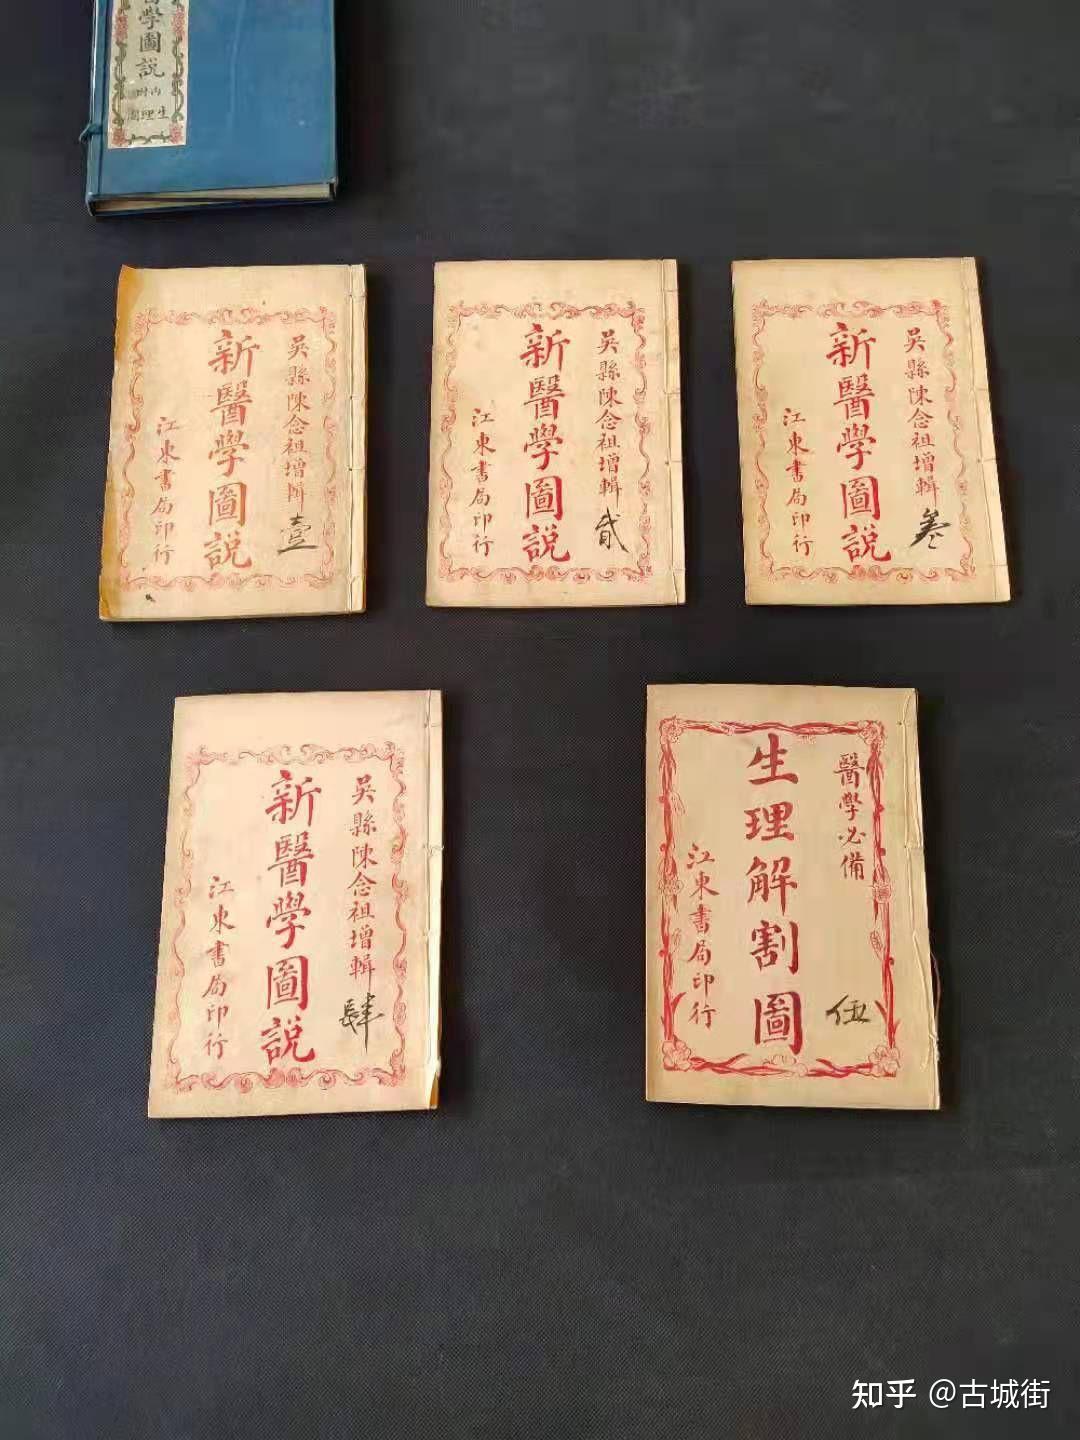 醫學圖說
內附
生理圖
吳縣陳念祖增輯
壹
新醫學圖說
江東書局印行
吳縣陳念祖增輯
貳
新醫學圖說
江東書局印行
吳縣陳念祖增輯
叁
新醫學圖說
江東書局印行
吳縣陳念祖增輯
肆
新醫學圖說
江東書局印行
醫學必備
伍
生理解割圖
江東書局印行
知乎 @古城街